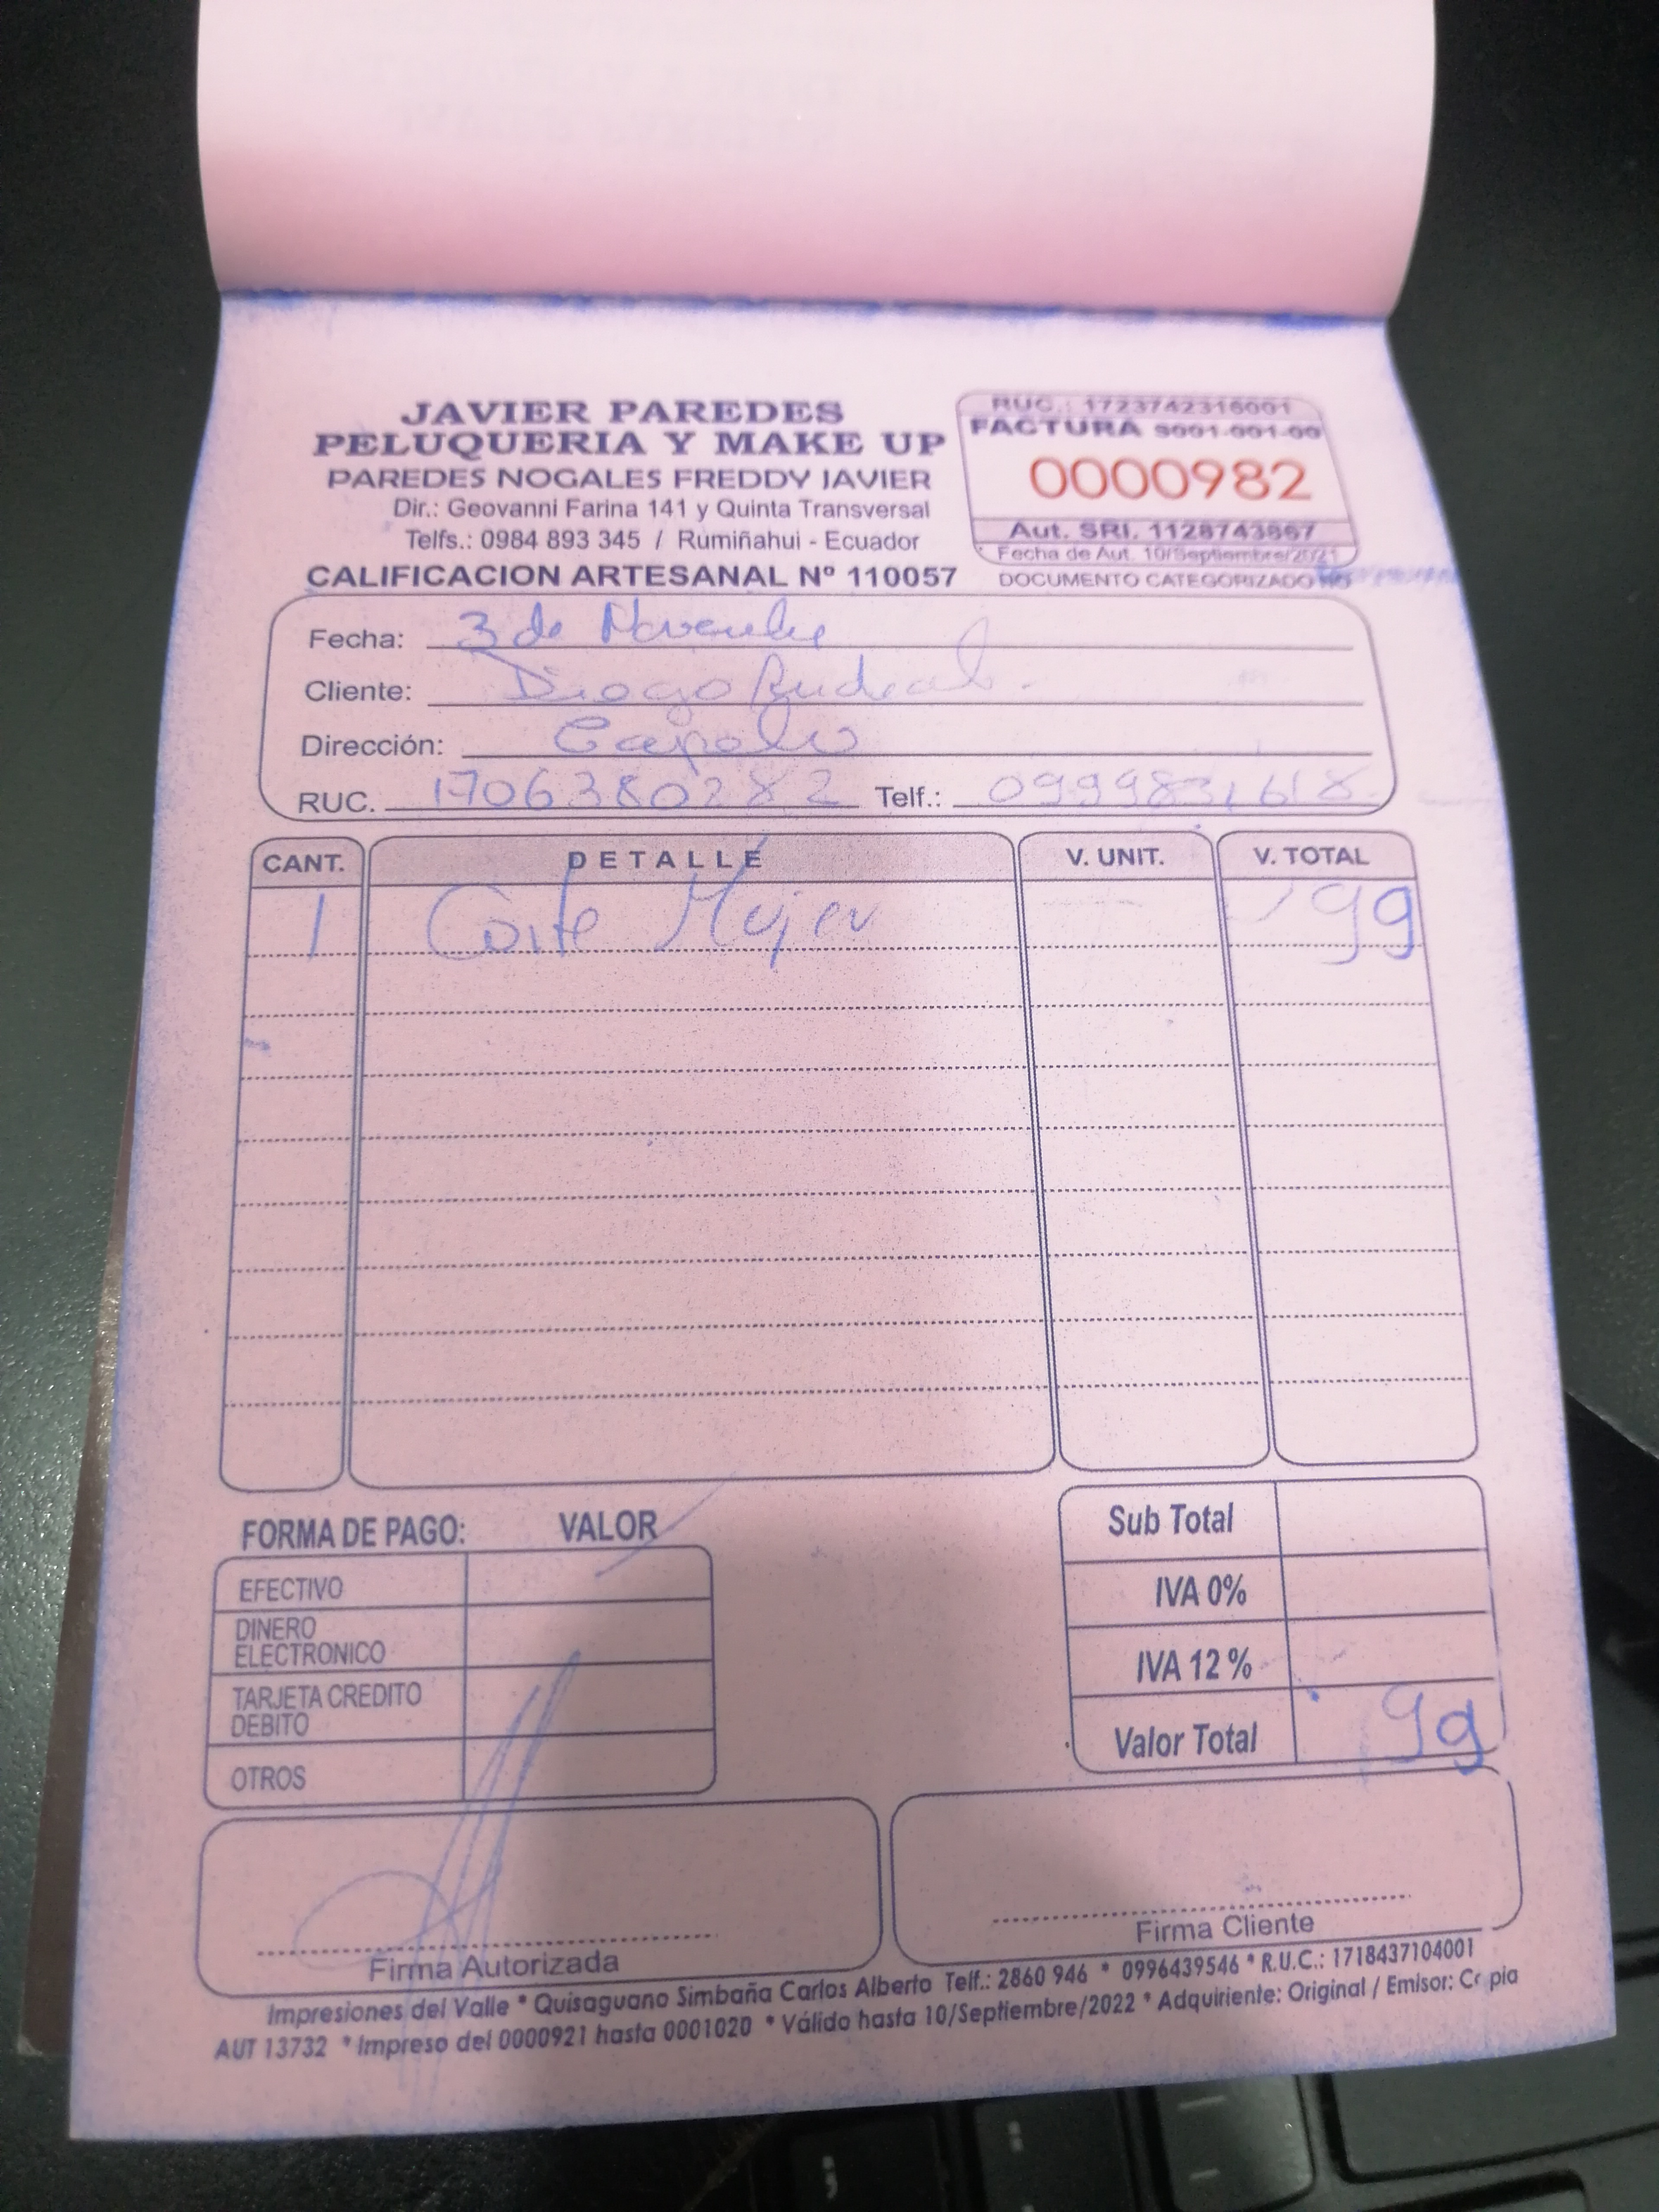 JAVIER PAREDES
PELUQUERIA Y MAKE UP
PAREDES NOGALES FREDDY JAVIER
Dir.: Geovanni Farina 141 y Quinta Transversal
Telfs.: 0984 893 345 / Rumiñahui - Ecuador
CALIFICACION ARTESANAL Nº 110057
RUC.: 1723742316001
FACTURA S001-001-00
0000982
Aut. SRI. 1128743867
Fecha de Aut. 10/Septiembre/2021
DOCUMENTO CATEGORIZADO NO
Fecha: 3 de Noviembre
Cliente: Diego
Dirección:
RUC. 1706380282 Telf.:
CANT. DETALLE V. UNIT. V. TOTAL
1 Corte Mujer 99
FORMA DE PAGO: VALOR
EFECTIVO
DINERO ELECTRONICO
TARJETA CREDITO DEBITO
OTROS
Sub Total
IVA 0%
IVA 12 %
Valor Total 99
Firma Autorizada
Firma Cliente
Impresiones del Valle * Quisaguano Simbaña Carlos Alberto Telf.: 2860 946 * 0996439546 * R.U.C.: 1718437104001
AUT 13732 * Impreso del 0000921 hasta 0001020 * Válido hasta 10/Septiembre/2022 * Adquiriente: Original / Emisor: Copia